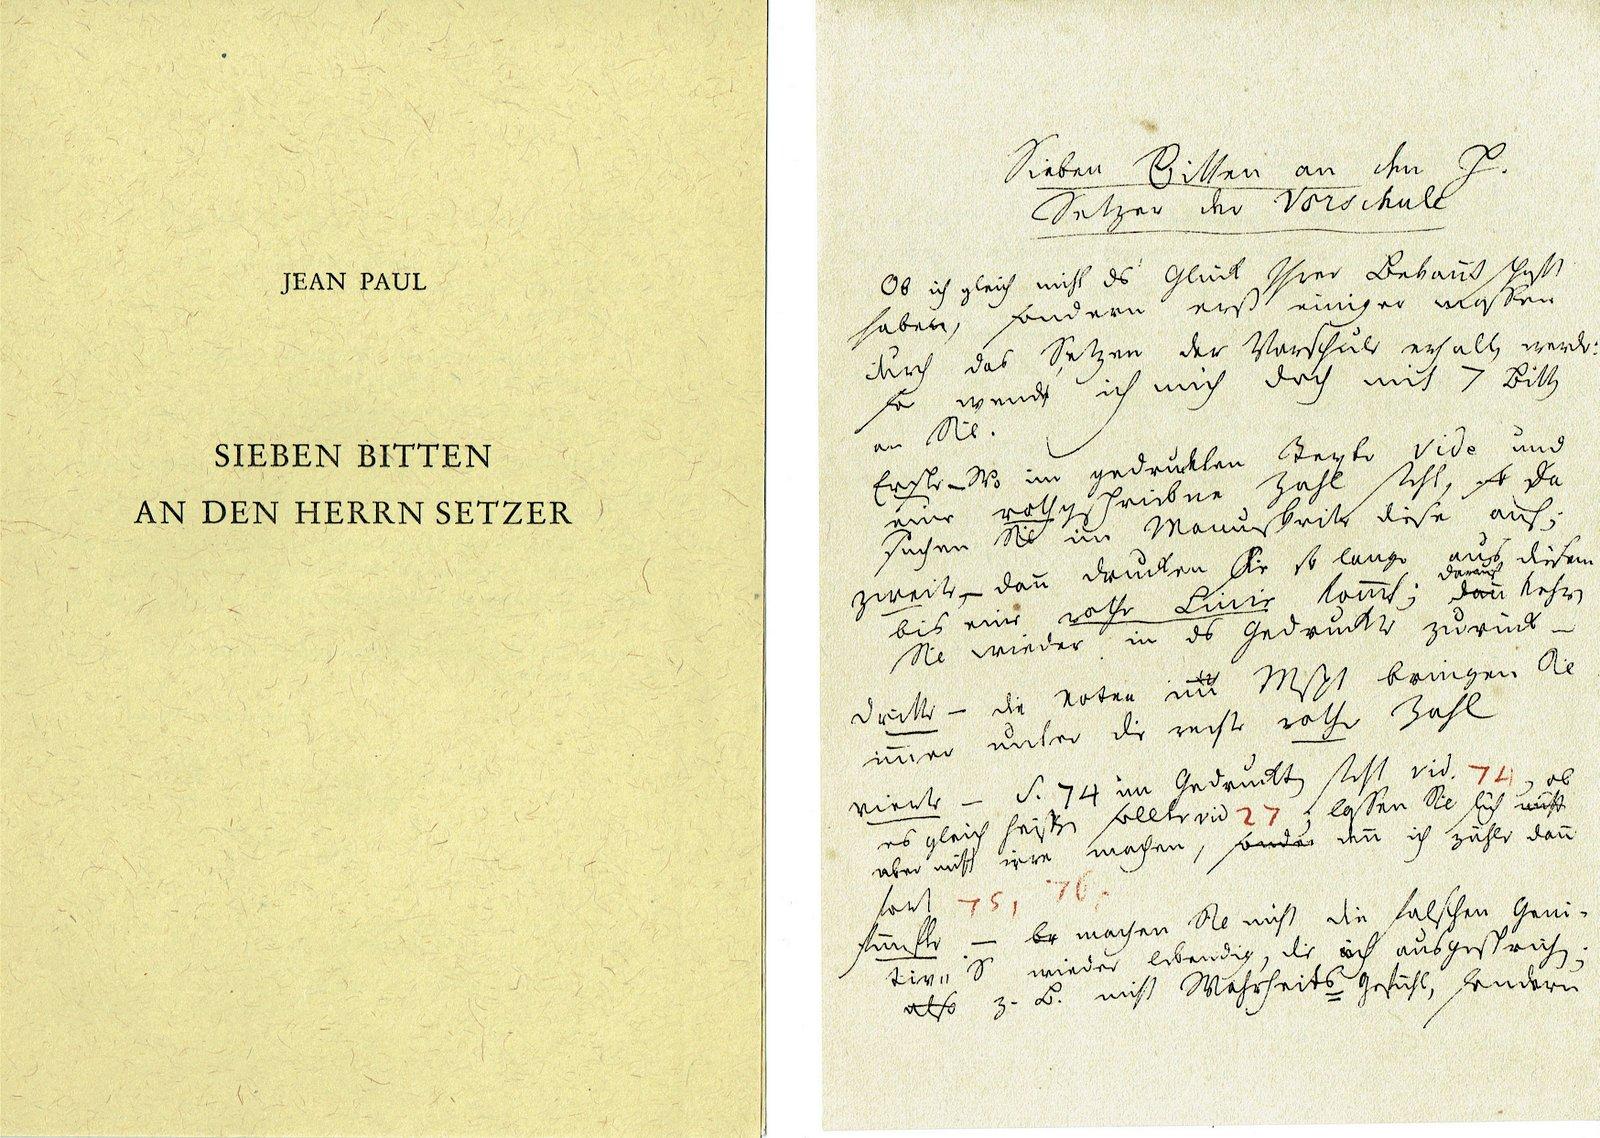 JEAN PAUL
SIEBEN BITTEN
AN DEN HERRN SETZER
Sieben Bitten an den H.
Setzer der Vorschule
Ob ich gleich nicht ds Glück Ihrer Bekantschaft
haben, sondern erst einiger massen
durch das Setzen der Vorschule erhalt werde:
so wende ich mich doch mit 7 Bitt
an Sie.
Erste – Wo im gedruckten Texte vide und
eine rothgeschriebne Zahl steht, da
suchen Sie im Manuskripte diese auf;
zweite – dan drucken Sie so lange aus diesem
bis eine rothe Linie komt; darauf kehren
Sie wieder in ds Gedruckte zurück –
dritte – die Noten im Mspt bringen Sie
immer unter die rechte rothe Zahl
vierte – S. 74 im Gedruckten steht vid. 74, ob
es gleich heissen sollte vid 27; lassen Sie sich
aber nicht irre machen, denn ich zähle dann
fort 75, 76.
fünfte – machen Sie nicht die falschen Geni-
tiv= S wieder lebendig, die ich ausgestrichen;
also z. B. nicht Wahrheits=Gefühl, sondern